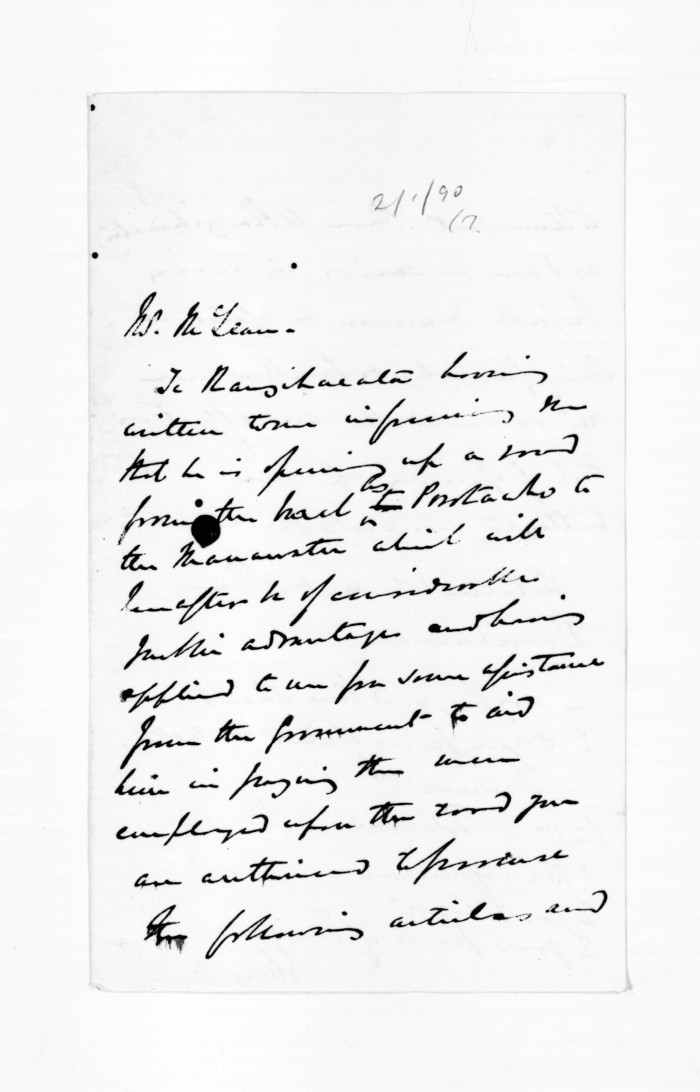 2/1/90
Mr. McLean.
Te Rangihaeata having
written to me informing me
that he is opening up a road
from the back to Porotawhao to
the Manawatu which will
hereafter be of considerable
public advantage and having
applied to me for some assistance
from the Government to aid
him in paying the men
employed upon the road you
are authorised to purchase
the following articles and